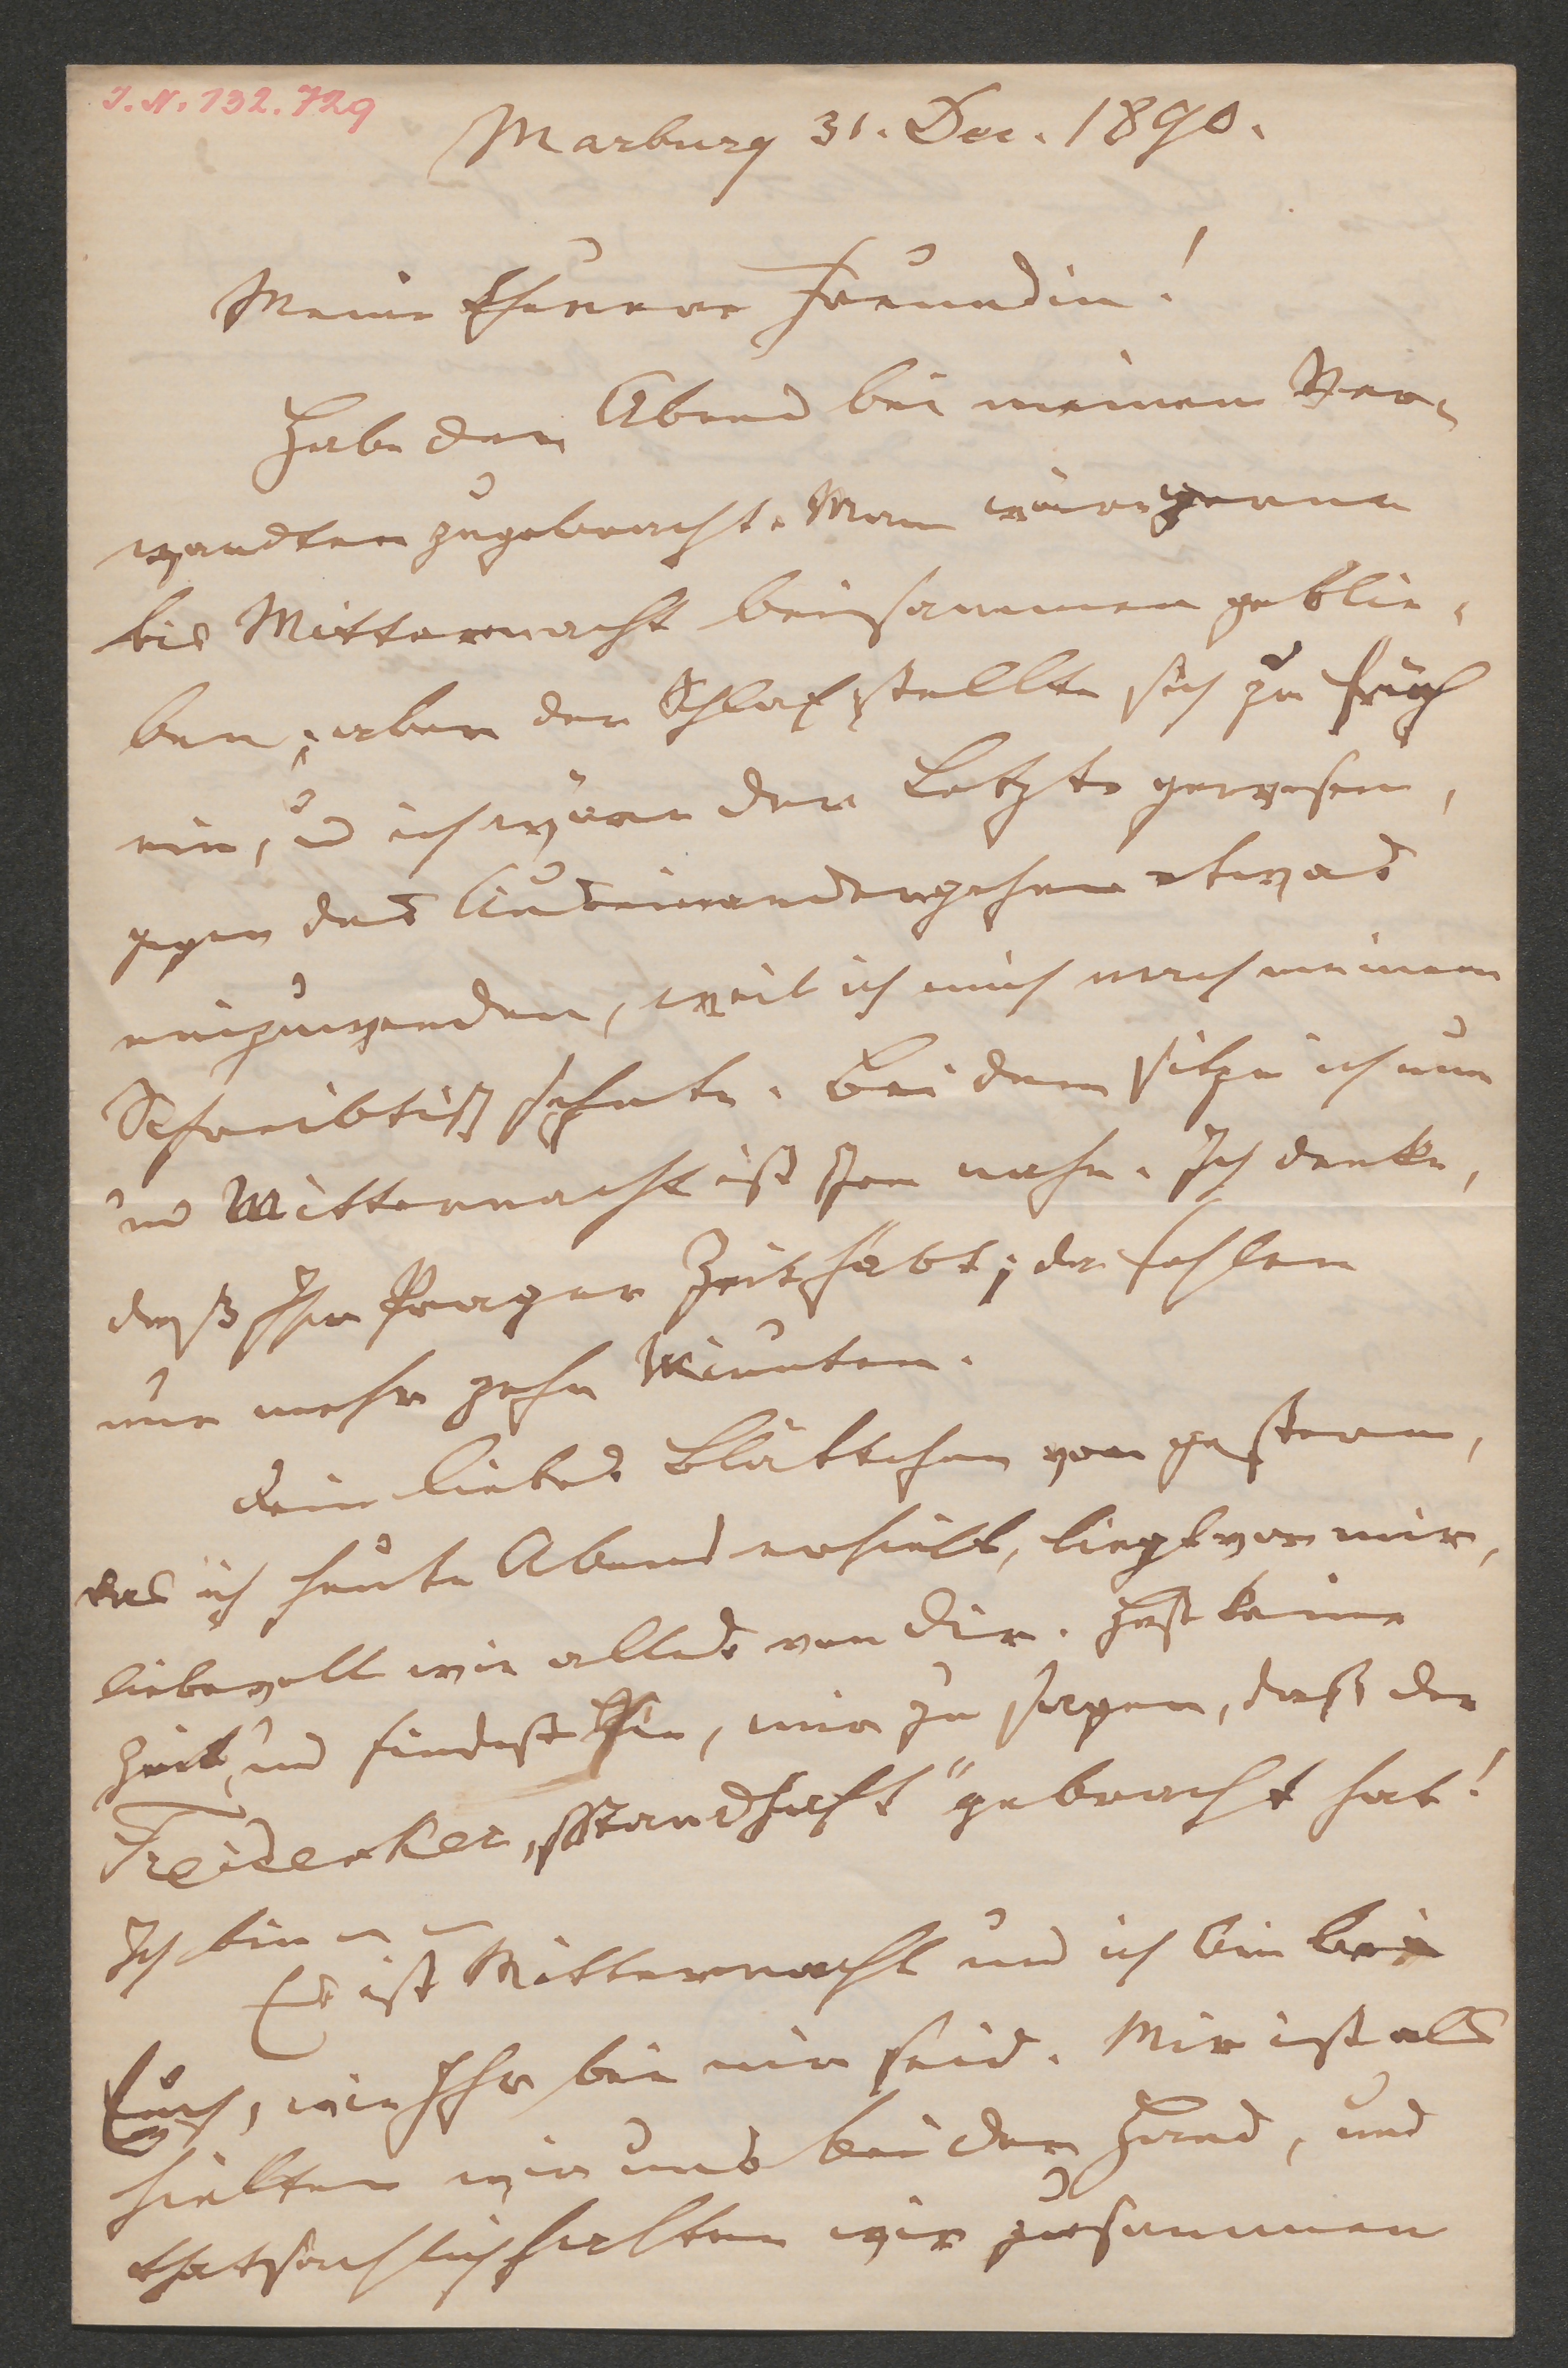 I. N. 132.729
Marburg 31. Dec. 1890.
Meine theuere Freundin!
Habe den Abend bei meinen Ver-
wandten zugebracht. Man wäre gerne
bis Mitternacht beisammen geblie-
ben; aber der Schlaf stellte sich zu früh
ein, u ich wäre der Letzte gewesen,
gegen das Auseinandergehen etwas
einzuwenden, weil ich mich nach meinem
Schreibtisch sehnte. Bei dem sitze ich nun
und Mitternacht ist schon nahe. Ich denke,
daß Ihr Prager Zeit habt; da fehlen
nur mehr zehn Minuten.
Dein liebes Blättchen von gestern,
das ich heute Abend erhielt, liegt vor mir,
liebevoll wie alles von Dir. Hast keine
Zeit, und findest sie, mir zu sagen, daß der
Freidenker „standhaft" gebracht hat!
Ich bin – –
Es ist Mitternacht und ich bin bei
Euch, wie Ihr bei mir seid. Mir ist als
hielten wir uns bei der Hand, und
thatsächlich halten wir zusammen